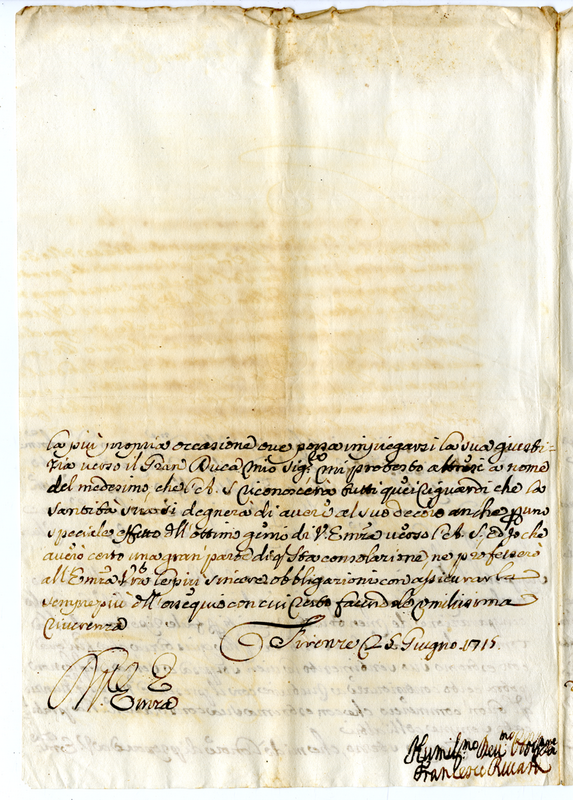 la più propria occasione ove possa impiegarsi la sua giusti-
zia verso il Gran Duca mio Sig.re mi protesto altresì a nome
del medesimo, che l'A. S. riconoscerà tutti quei riguardi che la
Santità Sua si degnerà di avere al suo decoro anche p uno
speciale effetto dell'ottimo genio di V. Emza verso l'A. S. ed io che
averò certo una gran parte di q.sta consolazione ne professerò
all'Emza V.ra le più sincere obbligazioni con assicurarla
sempre più dell'ossequio con cui resto facendole umilissima
riverenza
Firenze 25 Giugno 1715.
V. E.
Emza
Humil.mo Dev.mo Obb.
Francesco Riccardi